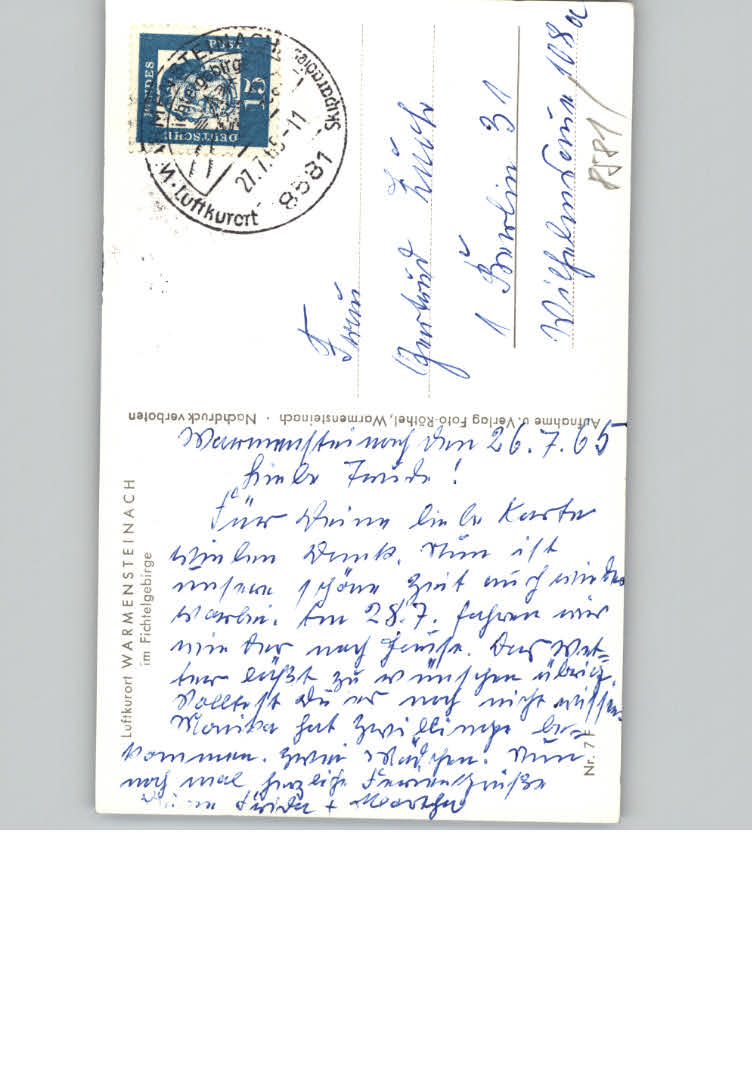 WARMENSTEINACH
Luftkurort
8581
27.7.65-11
Skiparadies
DEUTSCHE BUNDESPOST
15
Frau
Gertrud
1 Berlin 31
Wilhelmsaue 108a
8581/
Aufnahme u. Verlag Foto-Röthel, Warmensteinach · Nachdruck verboten
Luftkurort WARMENSTEINACH
im Fichtelgebirge
Nr. 7 F
Warmensteinach den 26.7.65
Liebe Trude!
Für Deine liebe Karte
vielen Dank. Nun ist
unsere schöne Zeit auch wieder
vorbei. Am 28.7. fahren wir
wieder nach Hause. Das Wet-
ter läßt zu wünschen übrig.
Solltest Du es noch nicht wissen
Monika hat Zwillinge be-
kommen. Zwei Mädchen. Nun
noch mal herzliche Feriengrüße
Deine Frieda + Martha